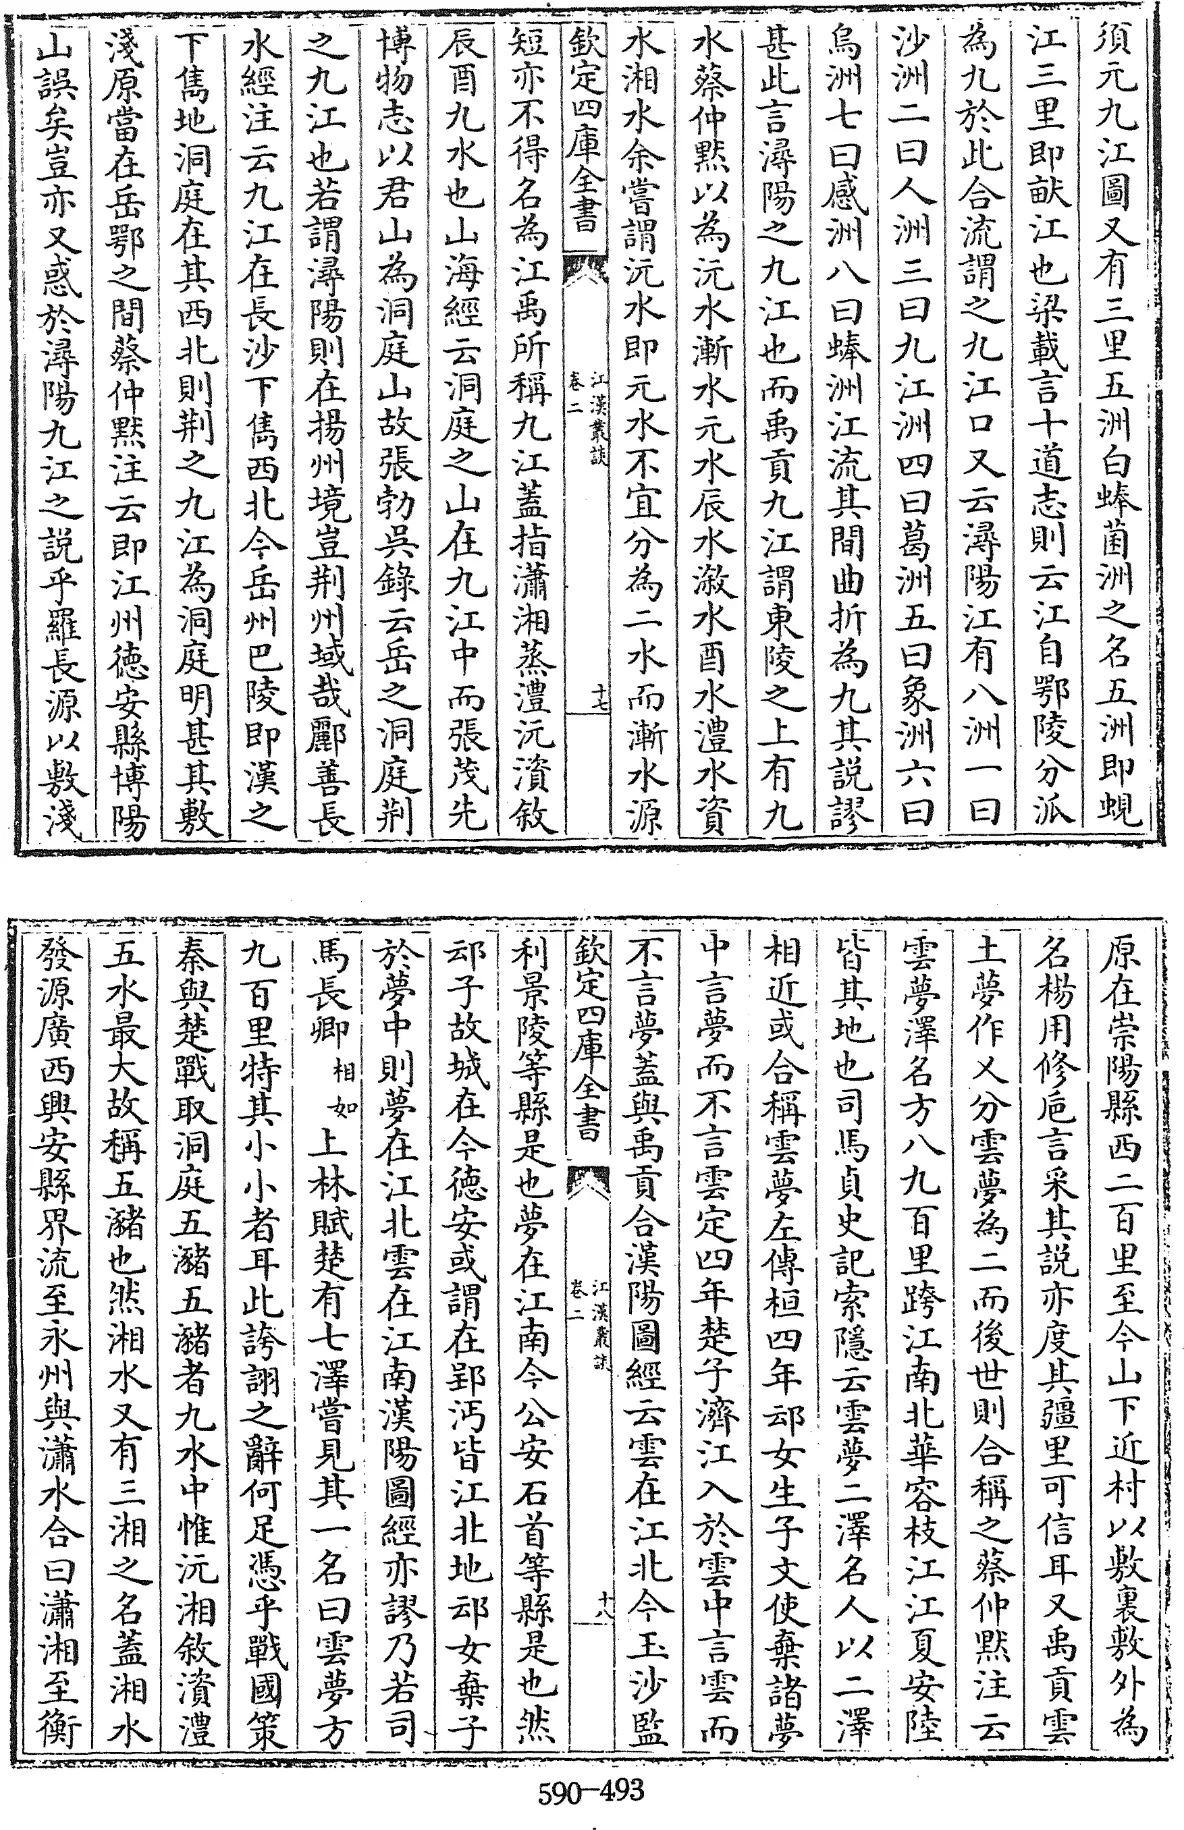 須元九江圖又有三里五洲白蜯菌洲之名五洲即蜆
江三里即畎江也梁載言十道志則云江自鄂陵分派
為九於此合流謂之九江口又云潯陽江有八洲一曰
沙洲二曰人洲三曰九江洲四曰葛洲五曰象洲六曰
烏洲七曰感洲八曰蜯洲江流其間曲折為九其説謬
甚此言潯陽之九江也而禹貢九江謂東陵之上有九
水蔡仲黙以為沅水漸水元水辰水漵水酉水澧水資
水湘水余嘗謂沅水即元水不宜分為二水而漸水源
欽定四庫全書
江漢叢談
卷二
十七
短亦不得名為江禹所稱九江蓋指瀟湘蒸澧沅濱敘
辰酉九水也山海經云洞庭之山在九江中而張茂先
博物志以君山為洞庭山故張勃吳錄云岳之洞庭荆
之九江也若謂潯陽則在揚州境豈荆州域哉酈善長
水經注云九江在長沙下雋西北今岳州巴陵即漢之
下雋地洞庭在其西北則荆之九江為洞庭明甚其敷
淺原當在岳鄂之間蔡仲黙注云即江州徳安縣博陽
山誤矣豈亦又惑於潯陽九江之説乎羅長源以敷淺
原在崇陽縣西二百里至今山下近村以敷裏敷外為
名楊用修巵言采其説亦度其疆里可信耳又禹貢雲
土夢作乂分雲夢為二而後世則合稱之蔡仲黙注云
雲夢澤名方八九百里跨江南北華容枝江江夏安陸
皆其地也司馬貞史記索隱云雲夢二澤名人以二澤
相近或合稱雲夢左傳桓四年䢵女生子文使棄諸夢
中言夢而不言雲定四年楚子濟江入於雲中言雲而
不言夢蓋與禹貢合漢陽圖經云雲在江北今玉沙監
欽定四庫全書
江漢叢談
卷二
十八
利景陵等縣是也夢在江南今公安石首等縣是也然
䢵子故城在今徳安或謂在郢沔皆江北地䢵女棄子
於夢中則夢在江北雲在江南漢陽圖經亦謬乃若司
馬長卿相如上林賦楚有七澤嘗見其一名曰雲夢方
九百里特其小小者耳此誇詡之辭何足憑乎戰國策
秦與楚戰取洞庭五瀦五瀦者九水中惟沅湘敘濱澧
五水最大故稱五瀦也然湘水又有三湘之名蓋湘水
發源廣西興安縣界流至永州與瀟水合曰瀟湘至衡
590-493